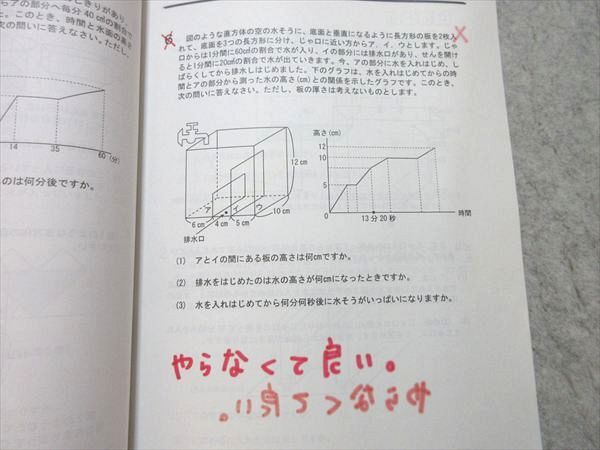 じきりがあり、
らアの部分へ毎分40㎤の割合で
た。このとき、時間と水面の高さ
次の問いに答えなさい。ただし、
14 35 60(分)
のは何分後ですか。
図のような直方体の空の水そうに、底面と垂直になるように長方形の板を2枚入
れて、底面を3つの長方形に分け、じゃ口に近い方からア、イ、ウとします。じゃ
口からは1分間に60㎤の割合で水が入り、イの部分には排水口があり、せんを開け
ると1分間に20㎤の割合で水が出ていきます。今、アの部分に水を入れはじめ、し
ばらくしてから排水しはじめました。下のグラフは、水を入れはじめてからの時
間とアの部分から測った水の高さ(cm)との関係を示したグラフです。このとき、
次の問いに答えなさい。ただし、板の厚さは考えないものとします。
12 cm
ア イ ウ
6 cm 4 cm 5 cm 10 cm
排水口
高さ(cm)
12
11
10
8
5
0
13分20秒
時間
(1) アとイの間にある板の高さは何cmですか。
(2) 排水をはじめたのは水の高さが何cmになったときですか。
(3) 水を入れはじめてから何分何秒後に水そうがいっぱいになりますか。
やらなくて良い。
やらなくて良い。